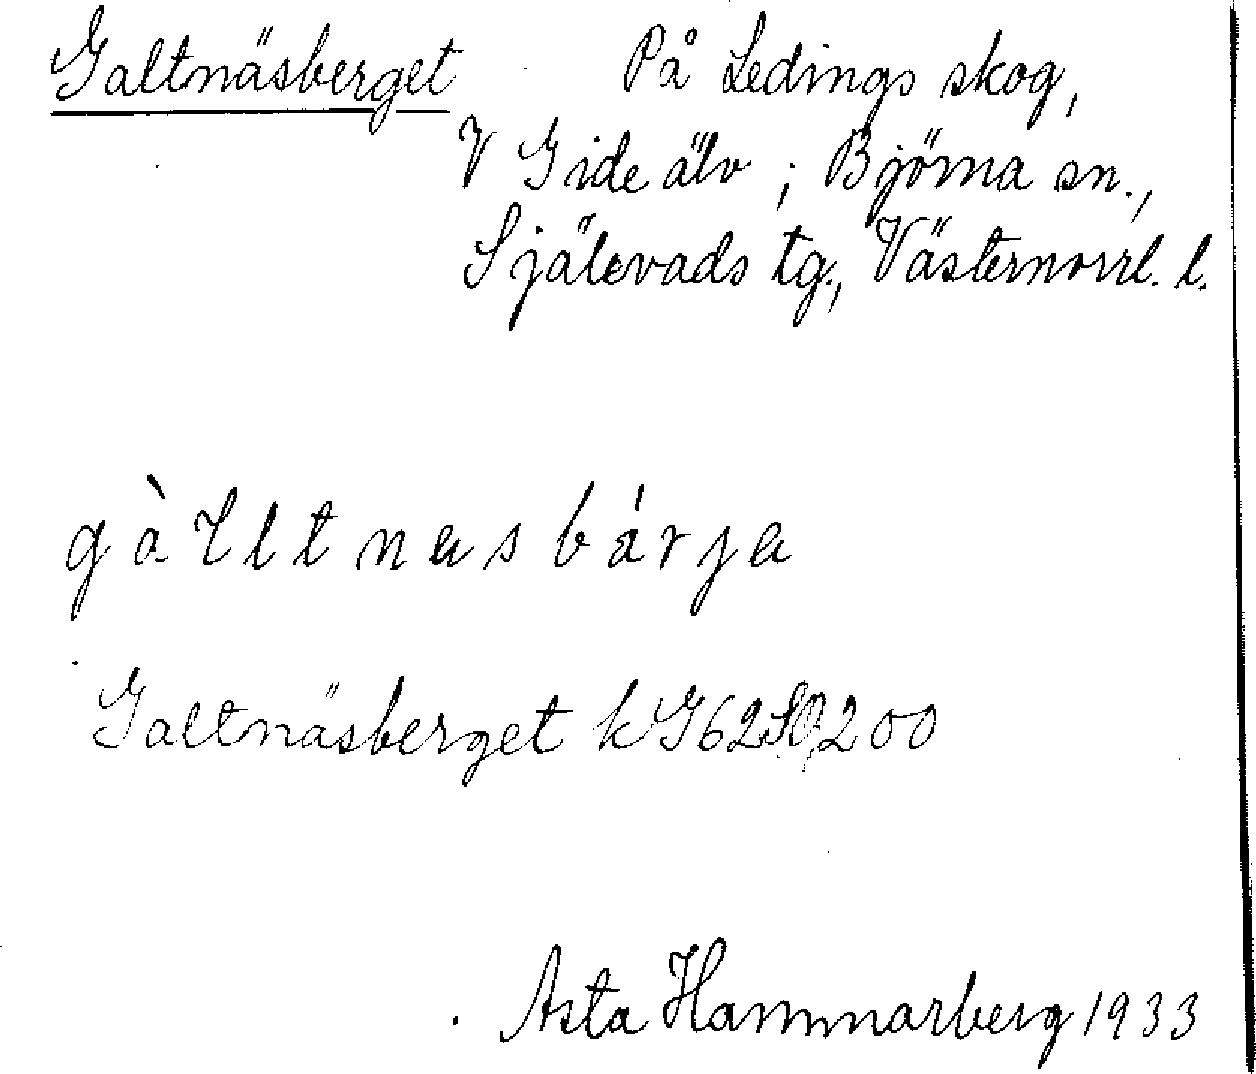 Galtnäsberget På Ledings skog,
V Gide älv ; Björna sn.,
Själevads tg., Västernorrl. l.
gàlltnasbárja
Galtnäsberget kG62SO200
Asta Hammarberg 1933